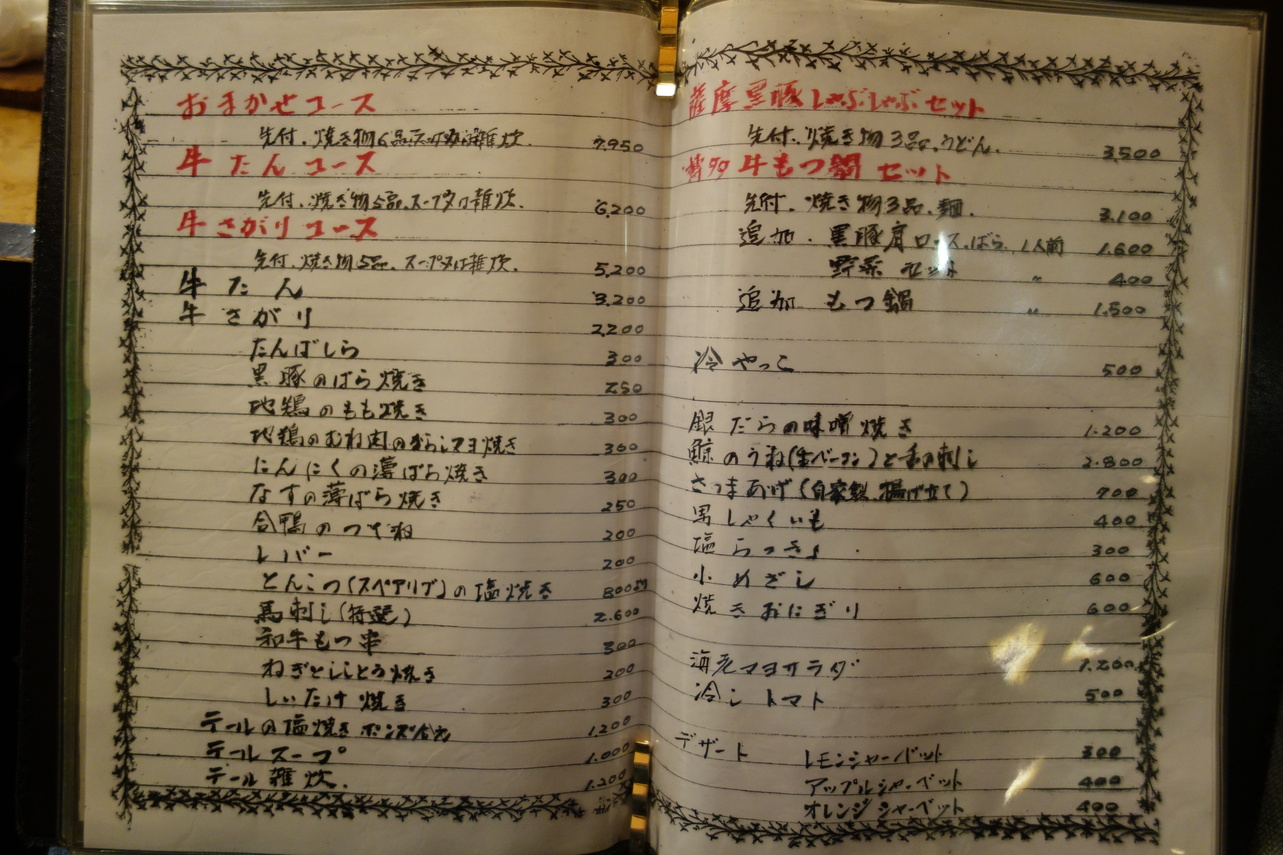 おまかせコース
先付、焼き物6品、 雑炊、 7,950
牛たんコース
先付、焼き物5品、スープ又は雑炊、 6,200
牛さがりコース
先付、焼き物5品、スープ又は雑炊、 5,200
牛たん 3,200
牛さがり 2,200
たんばしら 300
黒豚のばら焼き 250
地鶏のもも焼き 300
地鶏のむね肉のからしマヨ焼き 300
にんにくの薄ばら焼き 300
なすの薄ばら焼き 250
合鴨のつくね 200
レバー 200
とんこつ(スペアリブ)の塩焼き 800
馬刺し(特選) 2,600
和牛もつ串 300
ねぎとししとう焼き 200
しいたけ焼き 300
テールの塩焼き ポンズ 1,200
テールスープ 1,000
テール雑炊、 1,200
薩摩黒豚しゃぶしゃぶセット
先付、焼き物3品、うどん、 3,500
博多牛もつ鍋セット
先付、焼き物3品、麺、 3,100
追加、黒豚肩ロース、ばら、1人前 1,600
野菜セット 〃 400
追加 もつ鍋 〃 1,500
冷やっこ 500
銀だらの味噌焼き 1,200
鯨のうね(生ベーコン)と 刺し 2,800
さつまあげ(自家製、揚げ立て) 700
馬しゃくいも 400
塩らっきょ 300
小めざし 600
焼きおにぎり 600
海老マヨサラダ 1,200
冷しトマト 500
デザート レモンシャーベット 300
アップルシャーベット 400
オレンジシャーベット 400